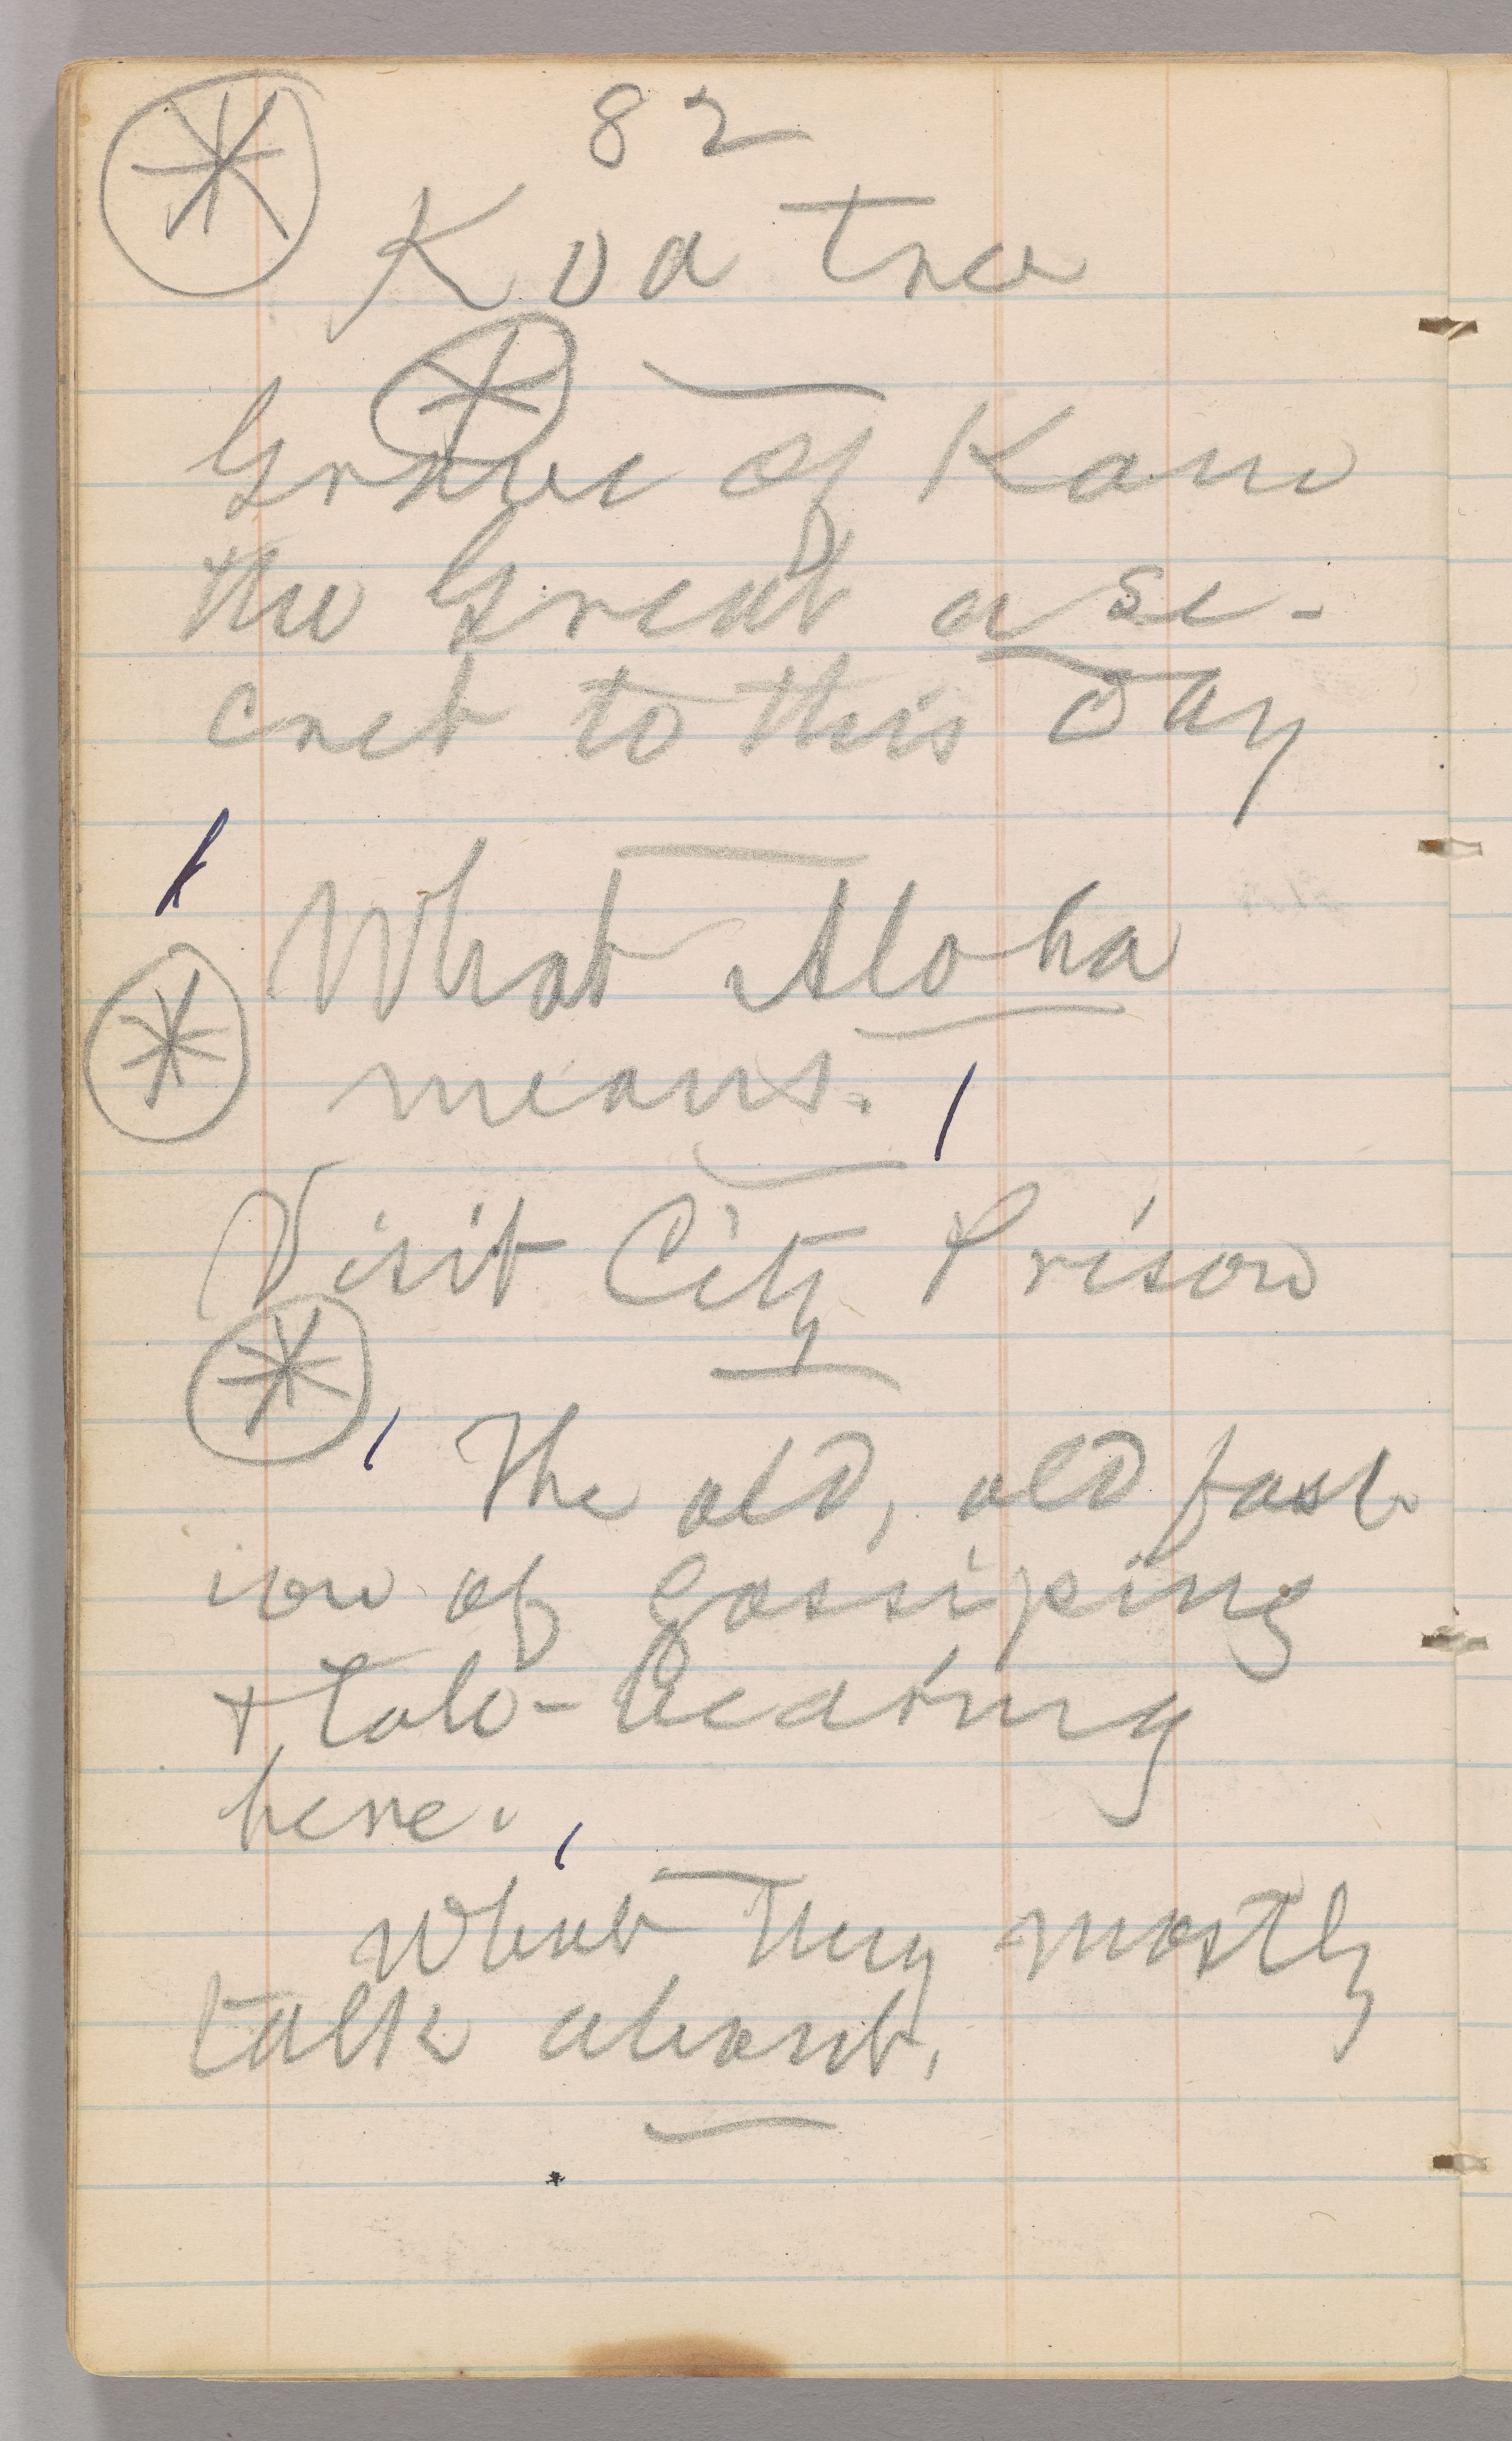 82
Koa tree
Grave of Kam
the Great a se-
cret to this day
What Aloha
means.
Visit City Prison
The old, old fash
ion of gossiping
+ tale-bearing
here.
What they mostly
talk about.